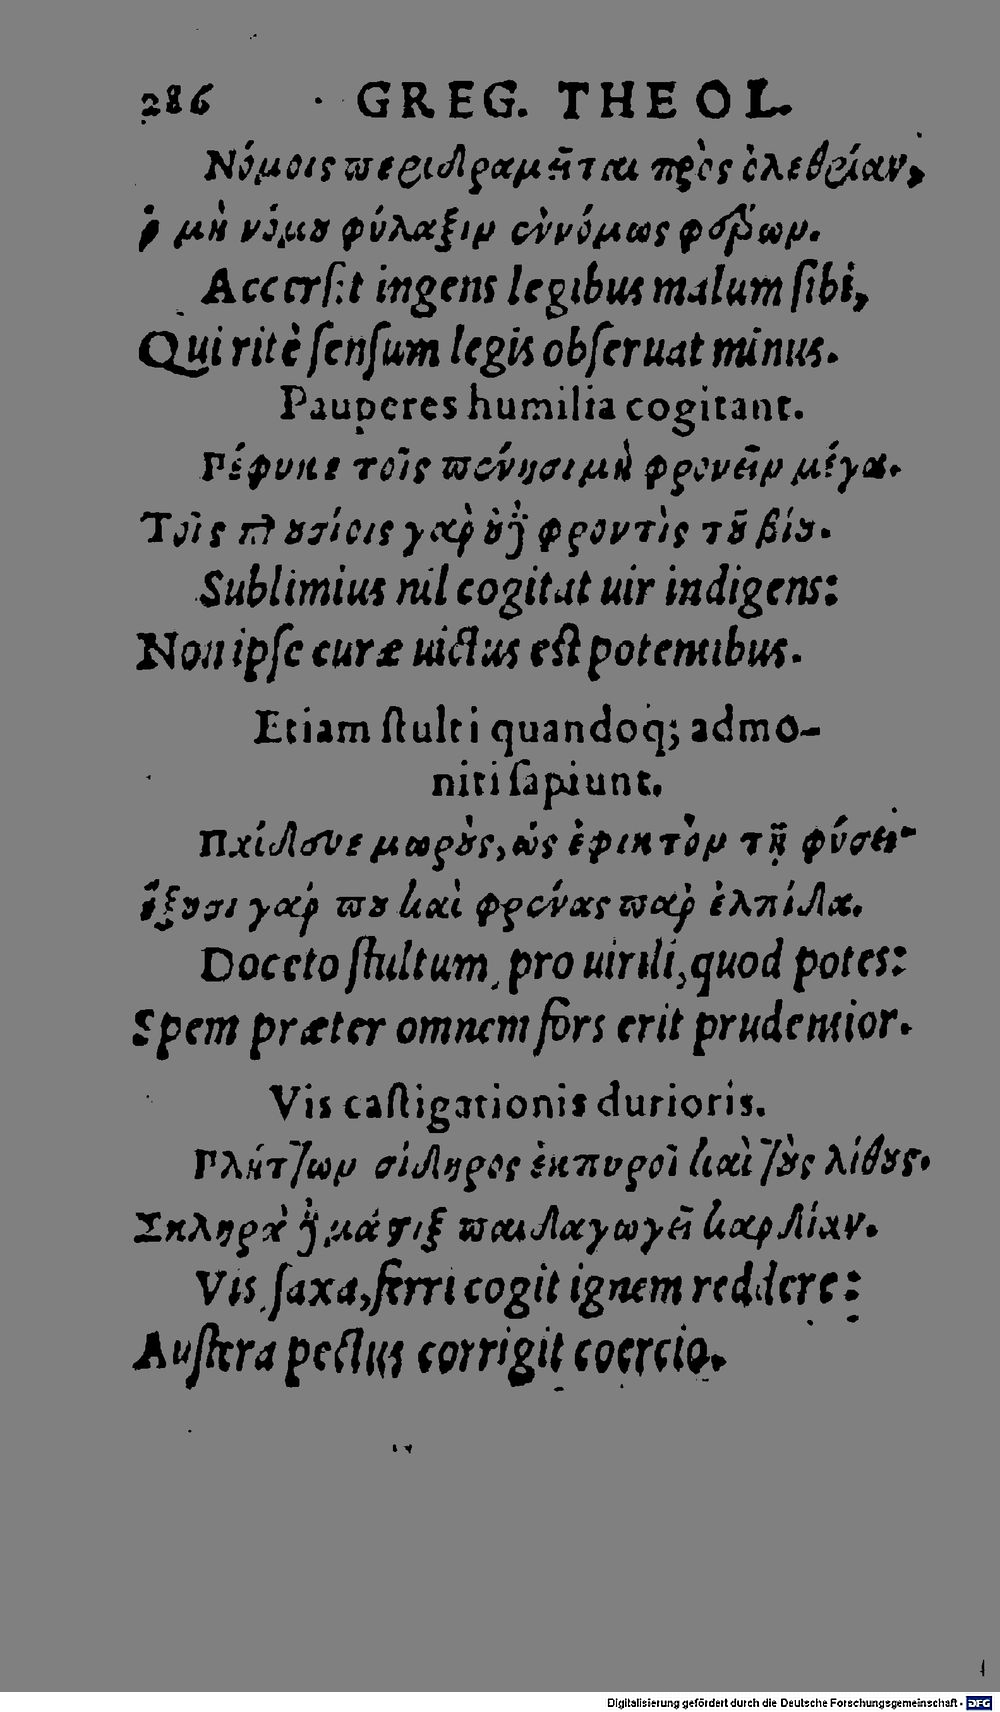 286 GREG. THEOL.
Νόμοις περιδραμεῖται πρὸς ὀλεθρίαν,
ὁ μὴ νόμου φύλαξιν ἐννόμως φέρων.
Accersit ingens legibus malum sibi,
Qui ritè sensum legis obseruat minus.
Pauperes humilia cogitant.
Πέφυκε τοῖς πένησι μὴ φρονεῖν μέγα.
Τοῖς πλουσίοις γὰρ οὐ φροντὶς τοῦ βίου.
Sublimius nil cogitat uir indigens:
Non ipse curæ uictus est potentibus.
Etiam stulti quandoq; admo-
niti sapiunt.
Παίδευε μωροὺς, ὡς ἐφικτὸν τῇ φύσει·
ἕξουσι γάρ που καὶ φρένας παρ᾽ ἐλπίδα.
Doceto stultum, pro uirili, quod potes:
Spem præter omnem fors erit prudentior.
Vis castigationis durioris.
Πλήττων σίδηρος ἐκπυροῖ καὶ τοὺς λίθους.
Σκληρὰ δὲ μάστιξ παιδαγωγεῖ καρδίαν.
Vis saxa, ferri cogit ignem reddere:
Austera pectus corrigit coercio.
Digitalisierung gefördert durch die Deutsche Forschungsgemeinschaft - DFG